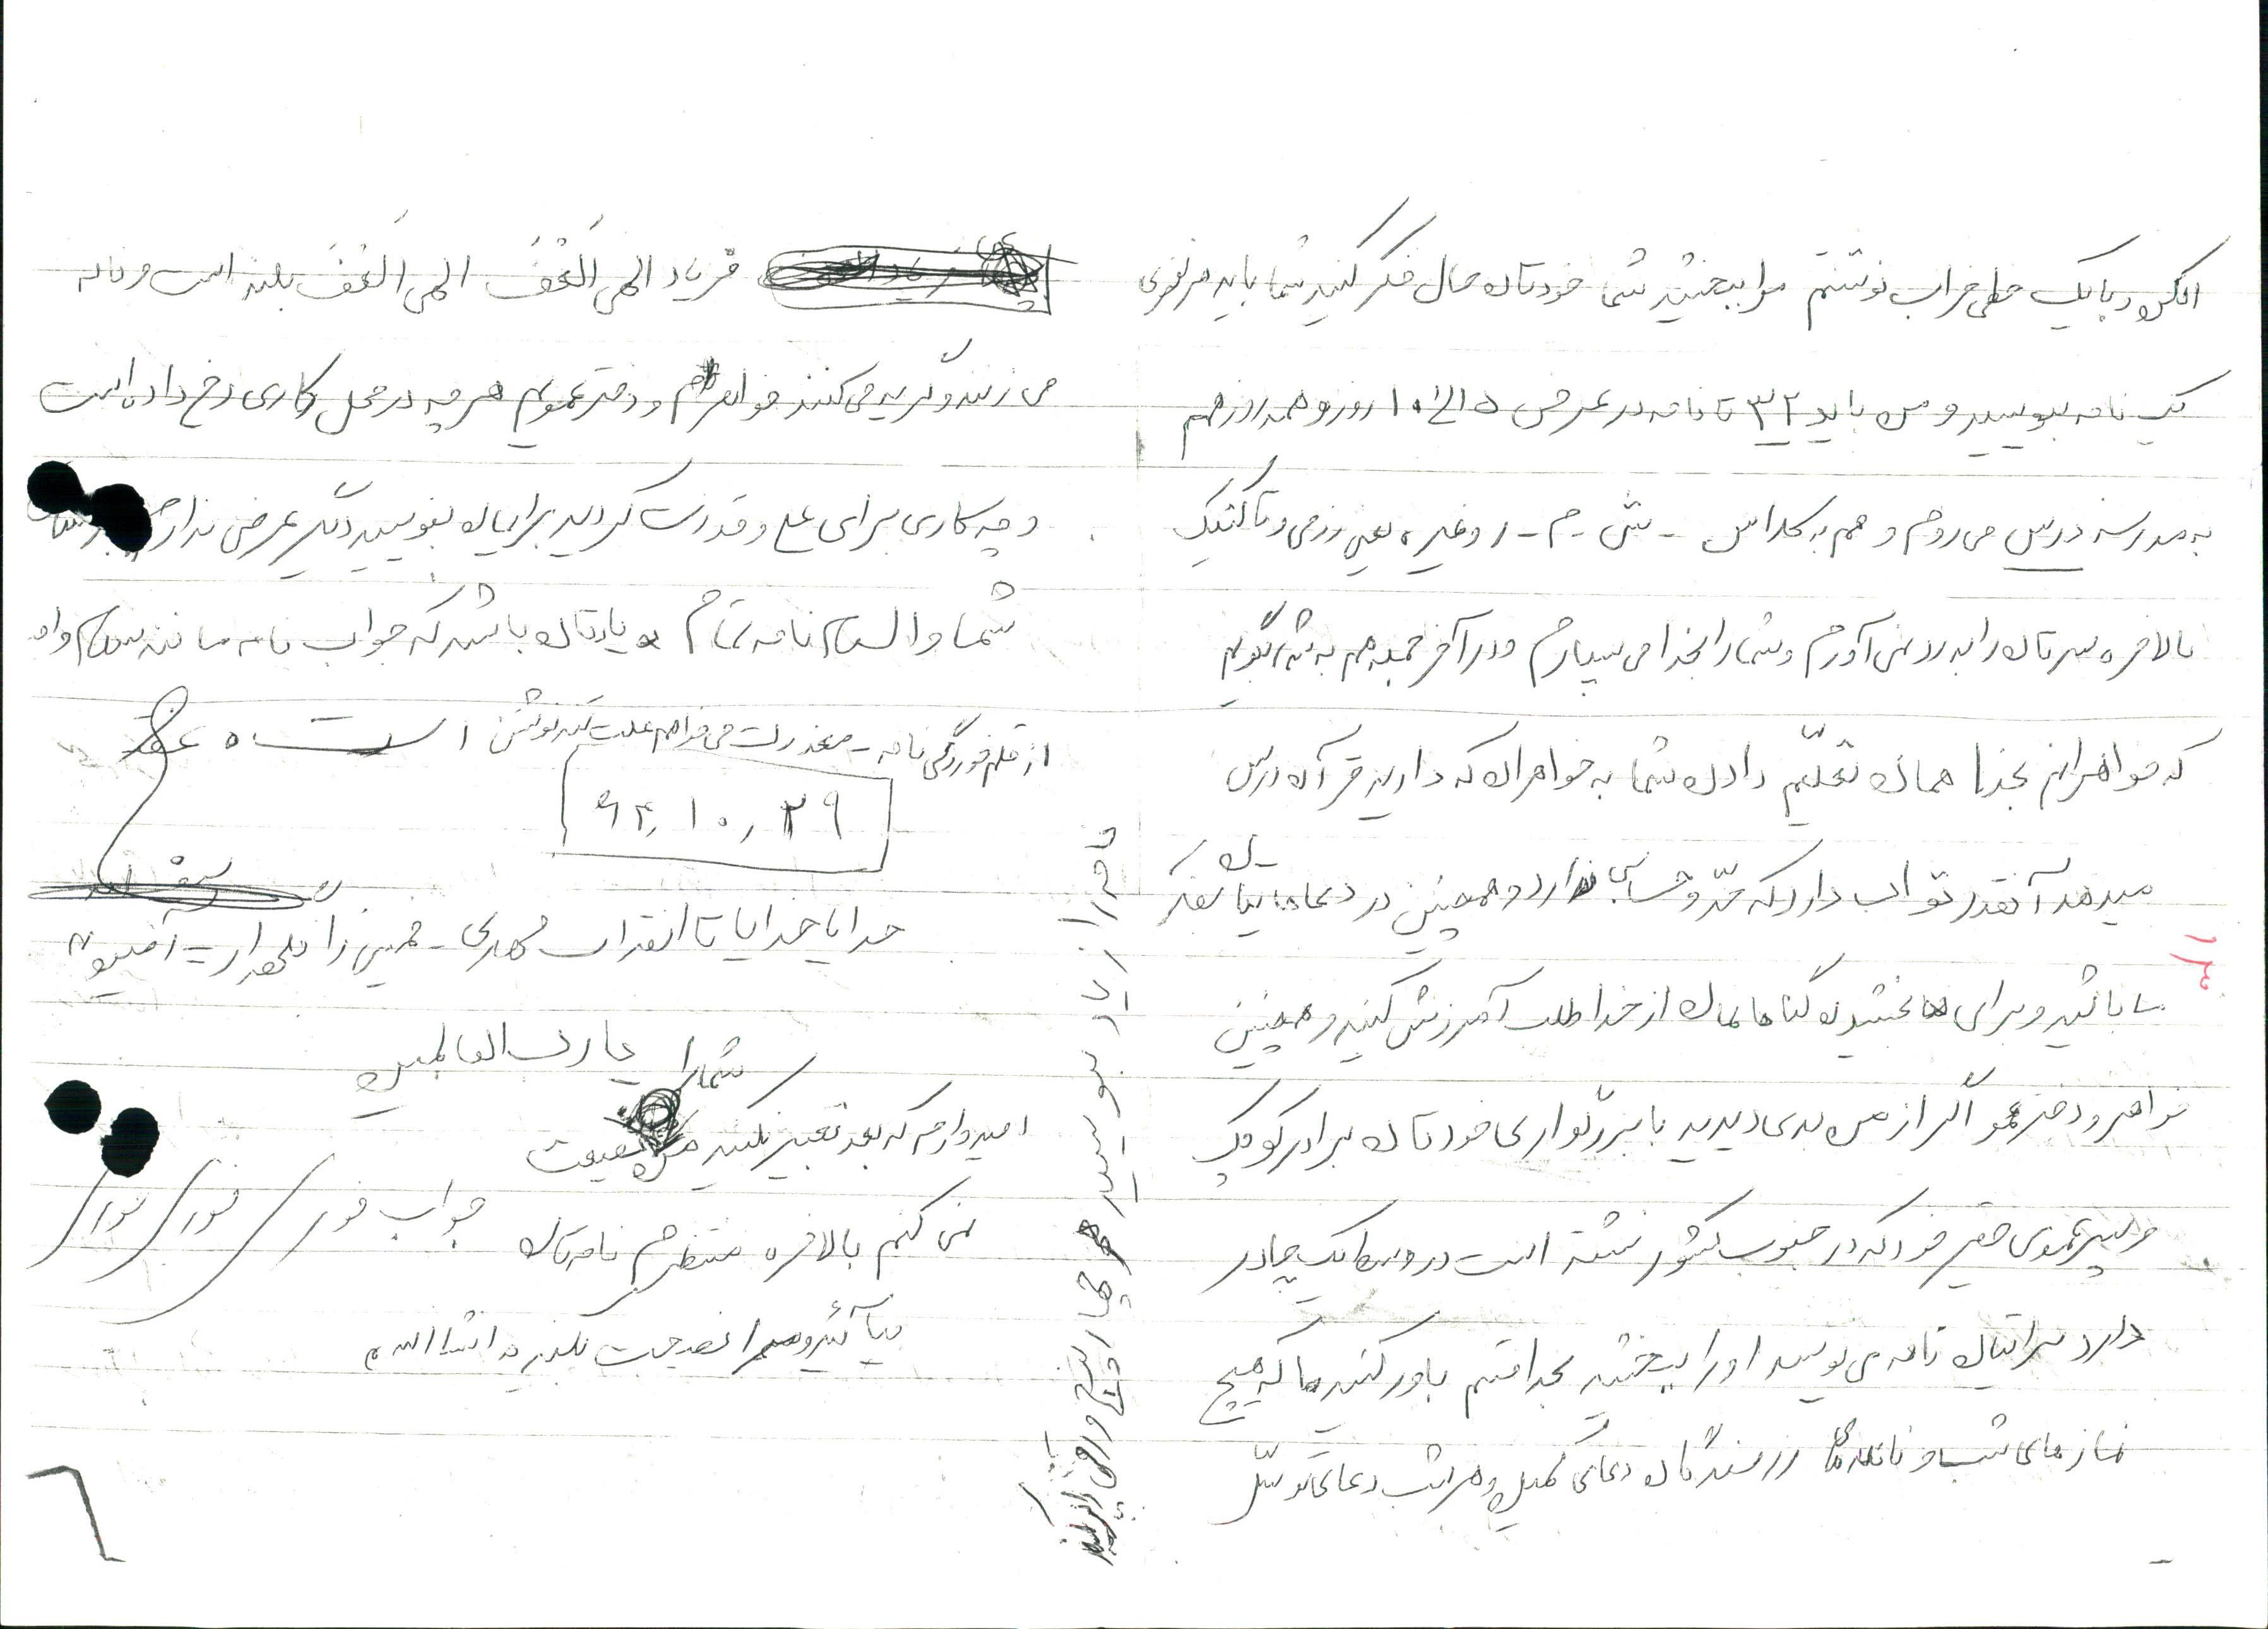 و با یک خطی خراب نوشتم مرا ببخشید شما خودتان حال فکر کنید شما باید هر نفری
یک نامه بنویسید و من باید ۳۲ تا نامه در عرض ۱۵ الی ۱۰ روز و همه روز هم
به مدرسه درس می روم و هم به کلاس - ش - م - ر و غیره یعنی رزمی و تاکتیک
بالاخره سرتان را به درد نمی آورم و شما را بخدا می سپارم و در آخر جمله هم به شما بگویم
که خواهرانم بخدا همان تعلیم دادن شما به خواهران که دارید قرآن درس
میدهد آنقدر ثواب دارد که حد و حسابی ندارد و همچنین در دعاهایتان بفکر
ما باشید و برای بخشیدن گناهانمان از خدا طلب آمرزش کنید و همچنین
خواهر و دختر عمو اگر از من بدی دیدید با بزرگواری خودتان برادر کوچک
و پسر عموی حقیر خود که در جنوب کشور نشسته است در وسط یک چادر
دارد برایتان نامه می نویسد او را ببخشید بخدا قسم باور کنید ما که هیچ
نماز های شب و رزمندگان دعای کمیل و هر شب دعای توسل
فریاد الهی العفو الهی العفو بلند است و ناله
می زنند و گریه می کنند خواهرم و دختر عمویم هر چه در محل کاری رخ داده است
و چه کاری برای علی و قدرت کردید برایمان بنویسید دیگر عرضی ندارم
شما والسلام نامه تمام یادتان باشد که جواب نامه مانند سلام واجب
است
از قلم خوردگی نامه - معذرت می خواهم علت تند نوشتن
۶۴,۱۰,۲۹
خدایا خدایا تا انقلاب مهدی - خمینی را نگهدار - آمین
یا رب العالمین
امیدوارم که بعد تعبیر نکنید شما را نصیحت
نمی کنم بالاخره منتظرم نامه تان جواب فوری فوری فوری
بیآئید و مرا نصیحت بکنید انشاالله
نامه را زیاد بنویسید